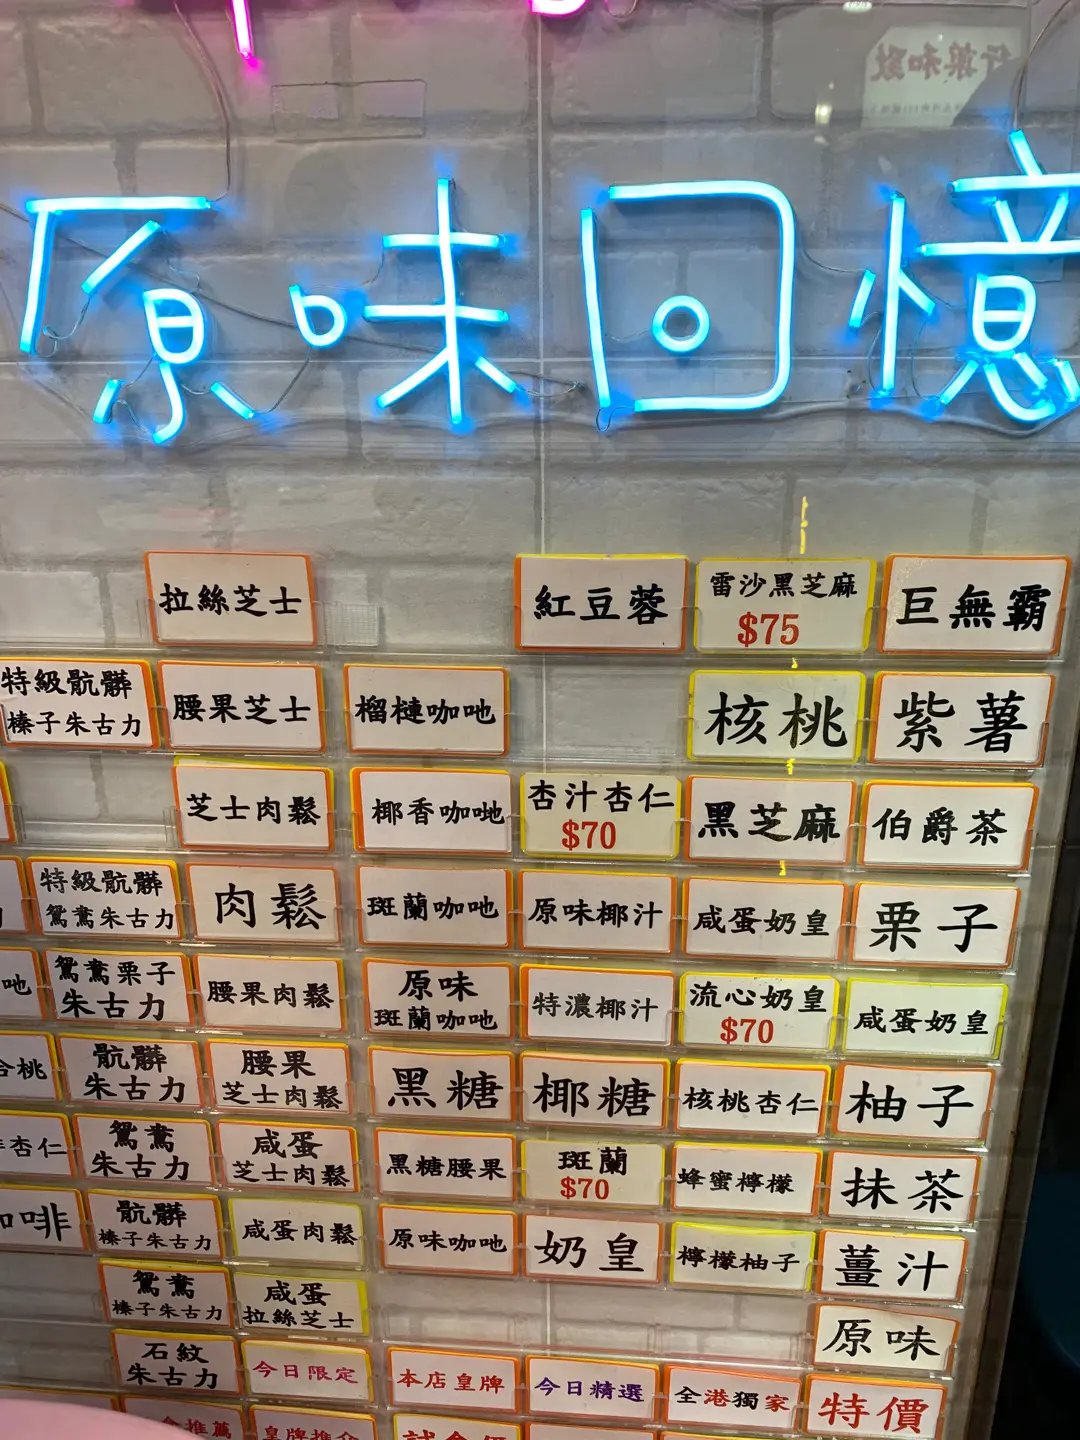 原味回憶
拉絲芝士
紅豆蓉
雷沙黑芝麻
$75
巨無霸
特級骯髒
榛子朱古力
腰果芝士
榴槤咖吔
核桃
紫薯
芝士肉鬆
椰香咖吔
杏汁杏仁
$70
黑芝麻
伯爵茶
特級骯髒
鴛鴦朱古力
肉鬆
斑蘭咖吔
原味椰汁
咸蛋奶皇
栗子
吔
鴛鴦栗子
朱古力
腰果肉鬆
原味
斑蘭咖吔
特濃椰汁
流心奶皇
$70
咸蛋奶皇
合桃
骯髒
朱古力
腰果
芝士肉鬆
黑糖
椰糖
核桃杏仁
柚子
杏仁
鴛鴦
朱古力
咸蛋
芝士肉鬆
黑糖腰果
斑蘭
$70
蜂蜜檸檬
抹茶
咖啡
骯髒
榛子朱古力
咸蛋肉鬆
原味咖吔
奶皇
檸檬柚子
薑汁
鴛鴦
榛子朱古力
咸蛋
拉絲芝士
原味
石紋
朱古力
今日限定
本店皇牌
今日精選
全港獨家
特價
推薦
皇牌推介